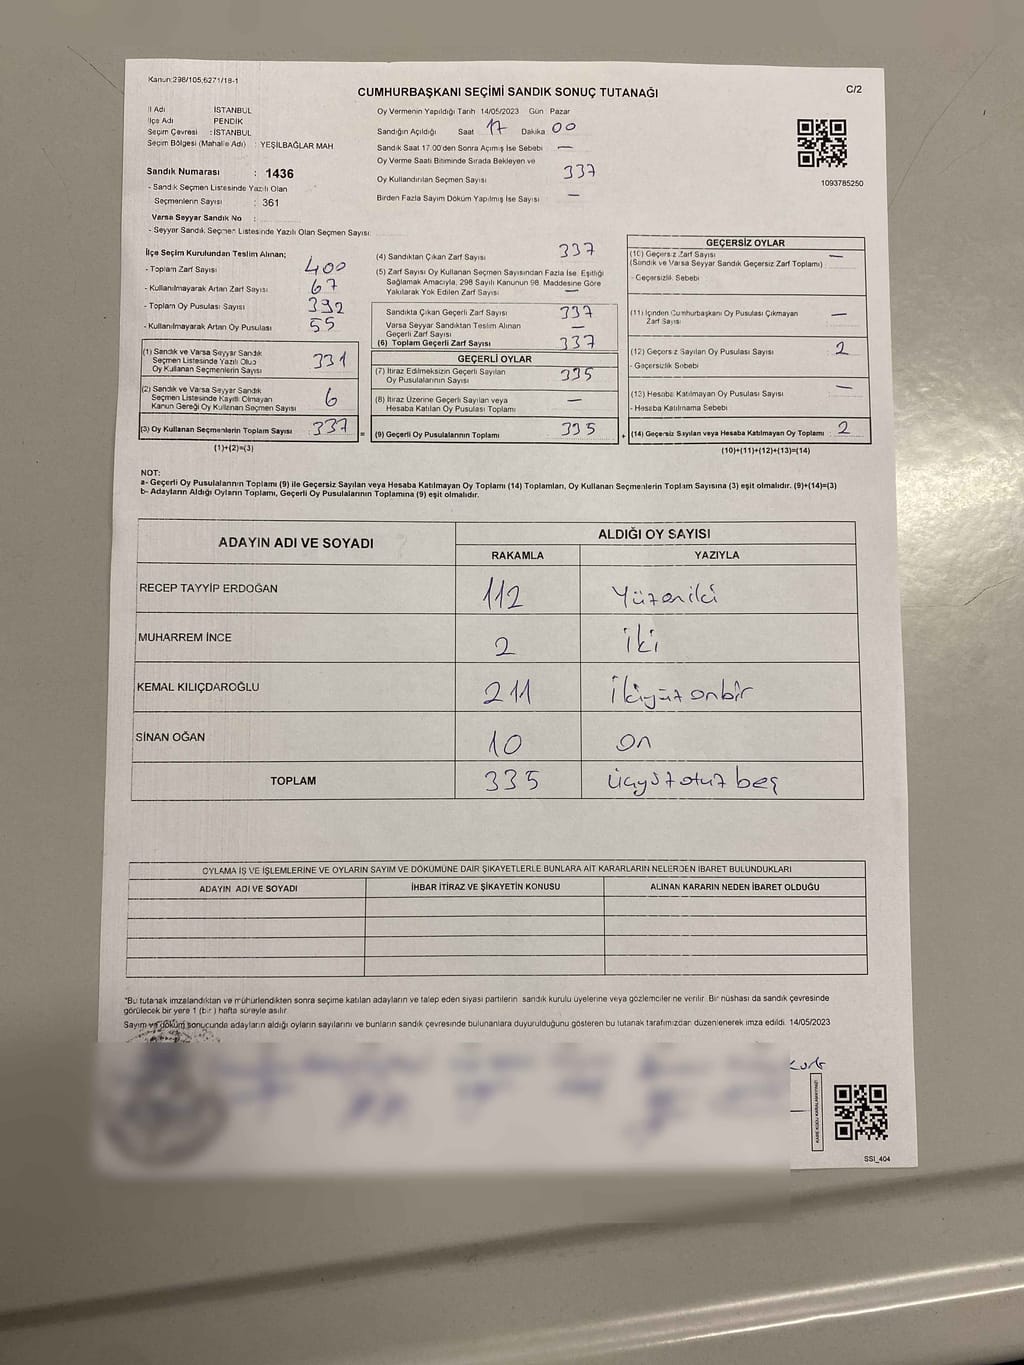 Kanun:298/105,6271/18-1
CUMHURBAŞKANI SEÇİMİ SANDIK SONUÇ TUTANAĞI
C/2
İl Adı İSTANBUL
İlçe Adı PENDİK
Seçim Çevresi : İSTANBUL
Seçim Bölgesi (Mahalle Adı) : YEŞİLBAĞLAR MAH.
Sandık Numarası : 1436
- Sandık Seçmen Listesinde Yazılı Olan
Seçmenlerin Sayısı : 361
Varsa Seyyar Sandık No :
- Seyyar Sandık Seçmen Listesinde Yazılı Olan Seçmen Sayısı:
Oy Vermenin Yapıldığı Tarih 14/05/2023 Gün Pazar
Sandığın Açıldığı Saat 17 Dakika 00
Sandık Saat 17.00'den Sonra Açılmış İse Sebebi —
Oy Verme Saati Bitiminde Sırada Bekleyen ve
Oy Kullandırılan Seçmen Sayısı 337
Birden Fazla Sayım Döküm Yapılmış İse Sayısı —
1093785250
İlçe Seçim Kurulundan Teslim Alınan;
- Toplam Zarf Sayısı 400
- Kullanılmayarak Artan Zarf Sayısı 67
- Toplam Oy Pusulası Sayısı 392
- Kullanılmayarak Artan Oy Pusulası 55
(1) Sandık ve Varsa Seyyar Sandık
Seçmen Listesinde Yazılı Olup
Oy Kullanan Seçmenlerin Sayısı 331
(2) Sandık ve Varsa Seyyar Sandık
Seçmen Listesinde Kayıtlı Olmayan
Kanun Gereği Oy Kullanan Seçmen Sayısı 6
(3) Oy Kullanan Seçmenlerin Toplam Sayısı 337
(1)+(2)=(3)
=
(4) Sandıktan Çıkan Zarf Sayısı 337
(5) Zarf Sayısı Oy Kullanan Seçmen Sayısından Fazla İse, Eşitliği
Sağlamak Amacıyla, 298 Sayılı Kanunun 98. Maddesine Göre
Yakılarak Yok Edilen Zarf Sayısı —
Sandıkta Çıkan Geçerli Zarf Sayısı 337
Varsa Seyyar Sandıktan Teslim Alınan
Geçerli Zarf Sayısı —
(6) Toplam Geçerli Zarf Sayısı 337
GEÇERLİ OYLAR
(7) İtiraz Edilmeksizin Geçerli Sayılan
Oy Pusulalarının Sayısı 335
(8) İtiraz Üzerine Geçerli Sayılan veya
Hesaba Katılan Oy Pusulası Toplamı —
(9) Geçerli Oy Pusulalarının Toplamı 335
+
GEÇERSİZ OYLAR
(10) Geçersiz Zarf Sayısı —
(Sandık ve Varsa Seyyar Sandık Geçersiz Zarf Toplamı)
- Geçersizlik Sebebi
(11) İçinden Cumhurbaşkanı Oy Pusulası Çıkmayan
Zarf Sayısı —
(12) Geçersiz Sayılan Oy Pusulası Sayısı 2
- Geçersizlik Sebebi
(13) Hesaba Katılmayan Oy Pusulası Sayısı —
- Hesaba Katılmama Sebebi
(14) Geçersiz Sayılan veya Hesaba Katılmayan Oy Toplamı 2
(10)+(11)+(12)+(13)=(14)
NOT:
a- Geçerli Oy Pusulalarının Toplamı (9) ile Geçersiz Sayılan veya Hesaba Katılmayan Oy Toplamı (14) Toplamları, Oy Kullanan Seçmenlerin Toplam Sayısına (3) eşit olmalıdır. (9)+(14)=(3)
b- Adayların Aldığı Oyların Toplamı, Geçerli Oy Pusulalarının Toplamına (9) eşit olmalıdır.
ADAYIN ADI VE SOYADI
ALDIĞI OY SAYISI
RAKAMLA YAZIYLA
RECEP TAYYİP ERDOĞAN 112 Yüzoniki
MUHARREM İNCE 2 iki
KEMAL KILIÇDAROĞLU 211 ikiyüz onbir
SİNAN OĞAN 10 on
TOPLAM 335 üçyüz otuz beş
OYLAMA İŞ VE İŞLEMLERİNE VE OYLARIN SAYIM VE DÖKÜMÜNE DAİR ŞİKAYETLERLE BUNLARA AİT KARARLARIN NELERDEN İBARET BULUNDUKLARI
ADAYIN ADI VE SOYADI İHBAR İTİRAZ VE ŞİKAYETİN KONUSU ALINAN KARARIN NEDEN İBARET OLDUĞU
"Bu tutanak imzalandıktan ve mühürlendikten sonra seçime katılan adayların ve talep eden siyasi partilerin sandık kurulu üyelerine veya gözlemcilerine verilir. Bir nüshası da sandık çevresinde
görülecek bir yere 1 (bir) hafta süreyle asılır
Sayım ve döküm sonucunda adayların aldığı oyların sayılarını ve bunların sandık çevresinde bulunanlara duyurulduğunu gösteren bu tutanak tarafımızdan düzenlenerek imza edildi. 14/05/2023
KARE KODU KARALAMAYINIZ!
SSI_404